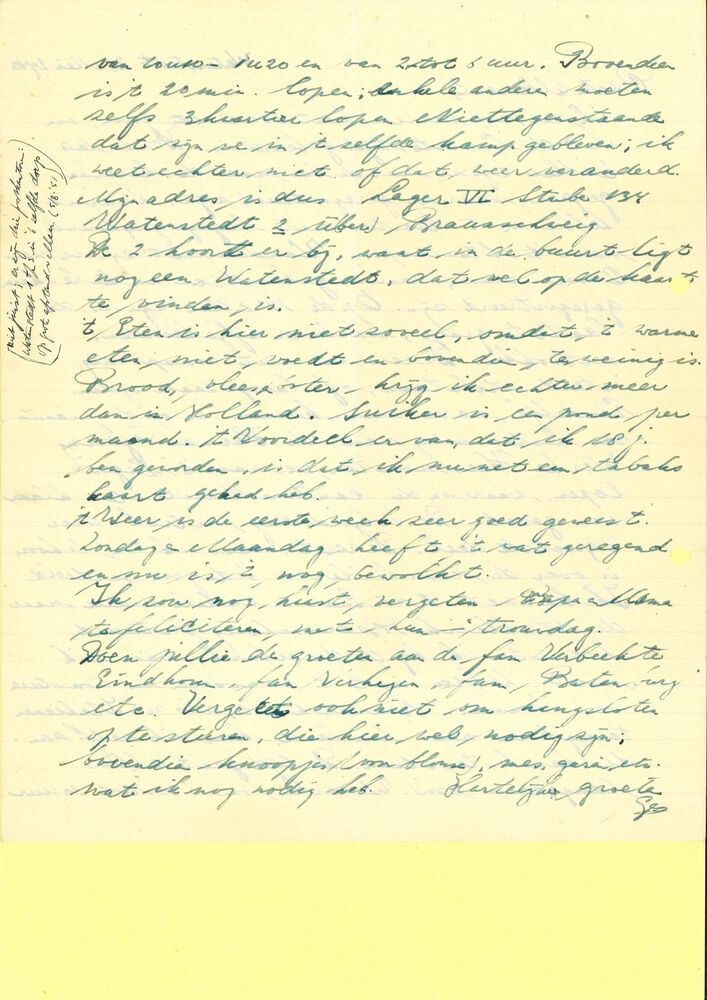 van 10.10 - 11.20 en van 2 tot 6 uur. Bovendien
is 't 20 min. lopen; enkele anderen moeten
zelfs 3 kwartier lopen. Niettegenstaande
dat zijn we in 't zelfde kamp gebleven; ik
weet echter niet of dat weer veranderd.
Mijn adres is dus Lager VI Stube 134
Watenstedt 2 (über) Braunschweig
De 2 hoort er bij, want in de buurt ligt
nog een Watenstedt, dat wel op de kaart
te vinden is.
't Eten is hier niet zoveel, omdat 't warme
eten niet voedt en bovendien te weinig is.
Brood, vlees, boter krijg ik echter meer
dan in Holland. Suiker is een pond per
maand. 't Voordeel ervan, dat ik 18 j.
ben geworden, is dat ik nu net een tabaks
kaart gehad heb.
't Weer is de eerste week zeer goed geweest.
Zondag en Maandag heeft 't wat geregend
en nu is 't nog bewolkt.
Ik zou nog haast vergeten Papa en Mama
te feliciteren met hun trouwdag.
Doen jullie de groeten aan de fam Verbeek te
Eindhoven, fam Verhagen, fam, Batenburg
etc. Vergeet ook niet om hangsloten
op te sturen, die hier wel nodig zijn;
bovendien knoopjes (van blouse), mes, garen, etc.
wat ik nog nodig heb. Hartelijke groeten
(niet juist; er zijn drie postkantoren:
Watenstedt 1 t/m 3 in 't zelfde dorp)